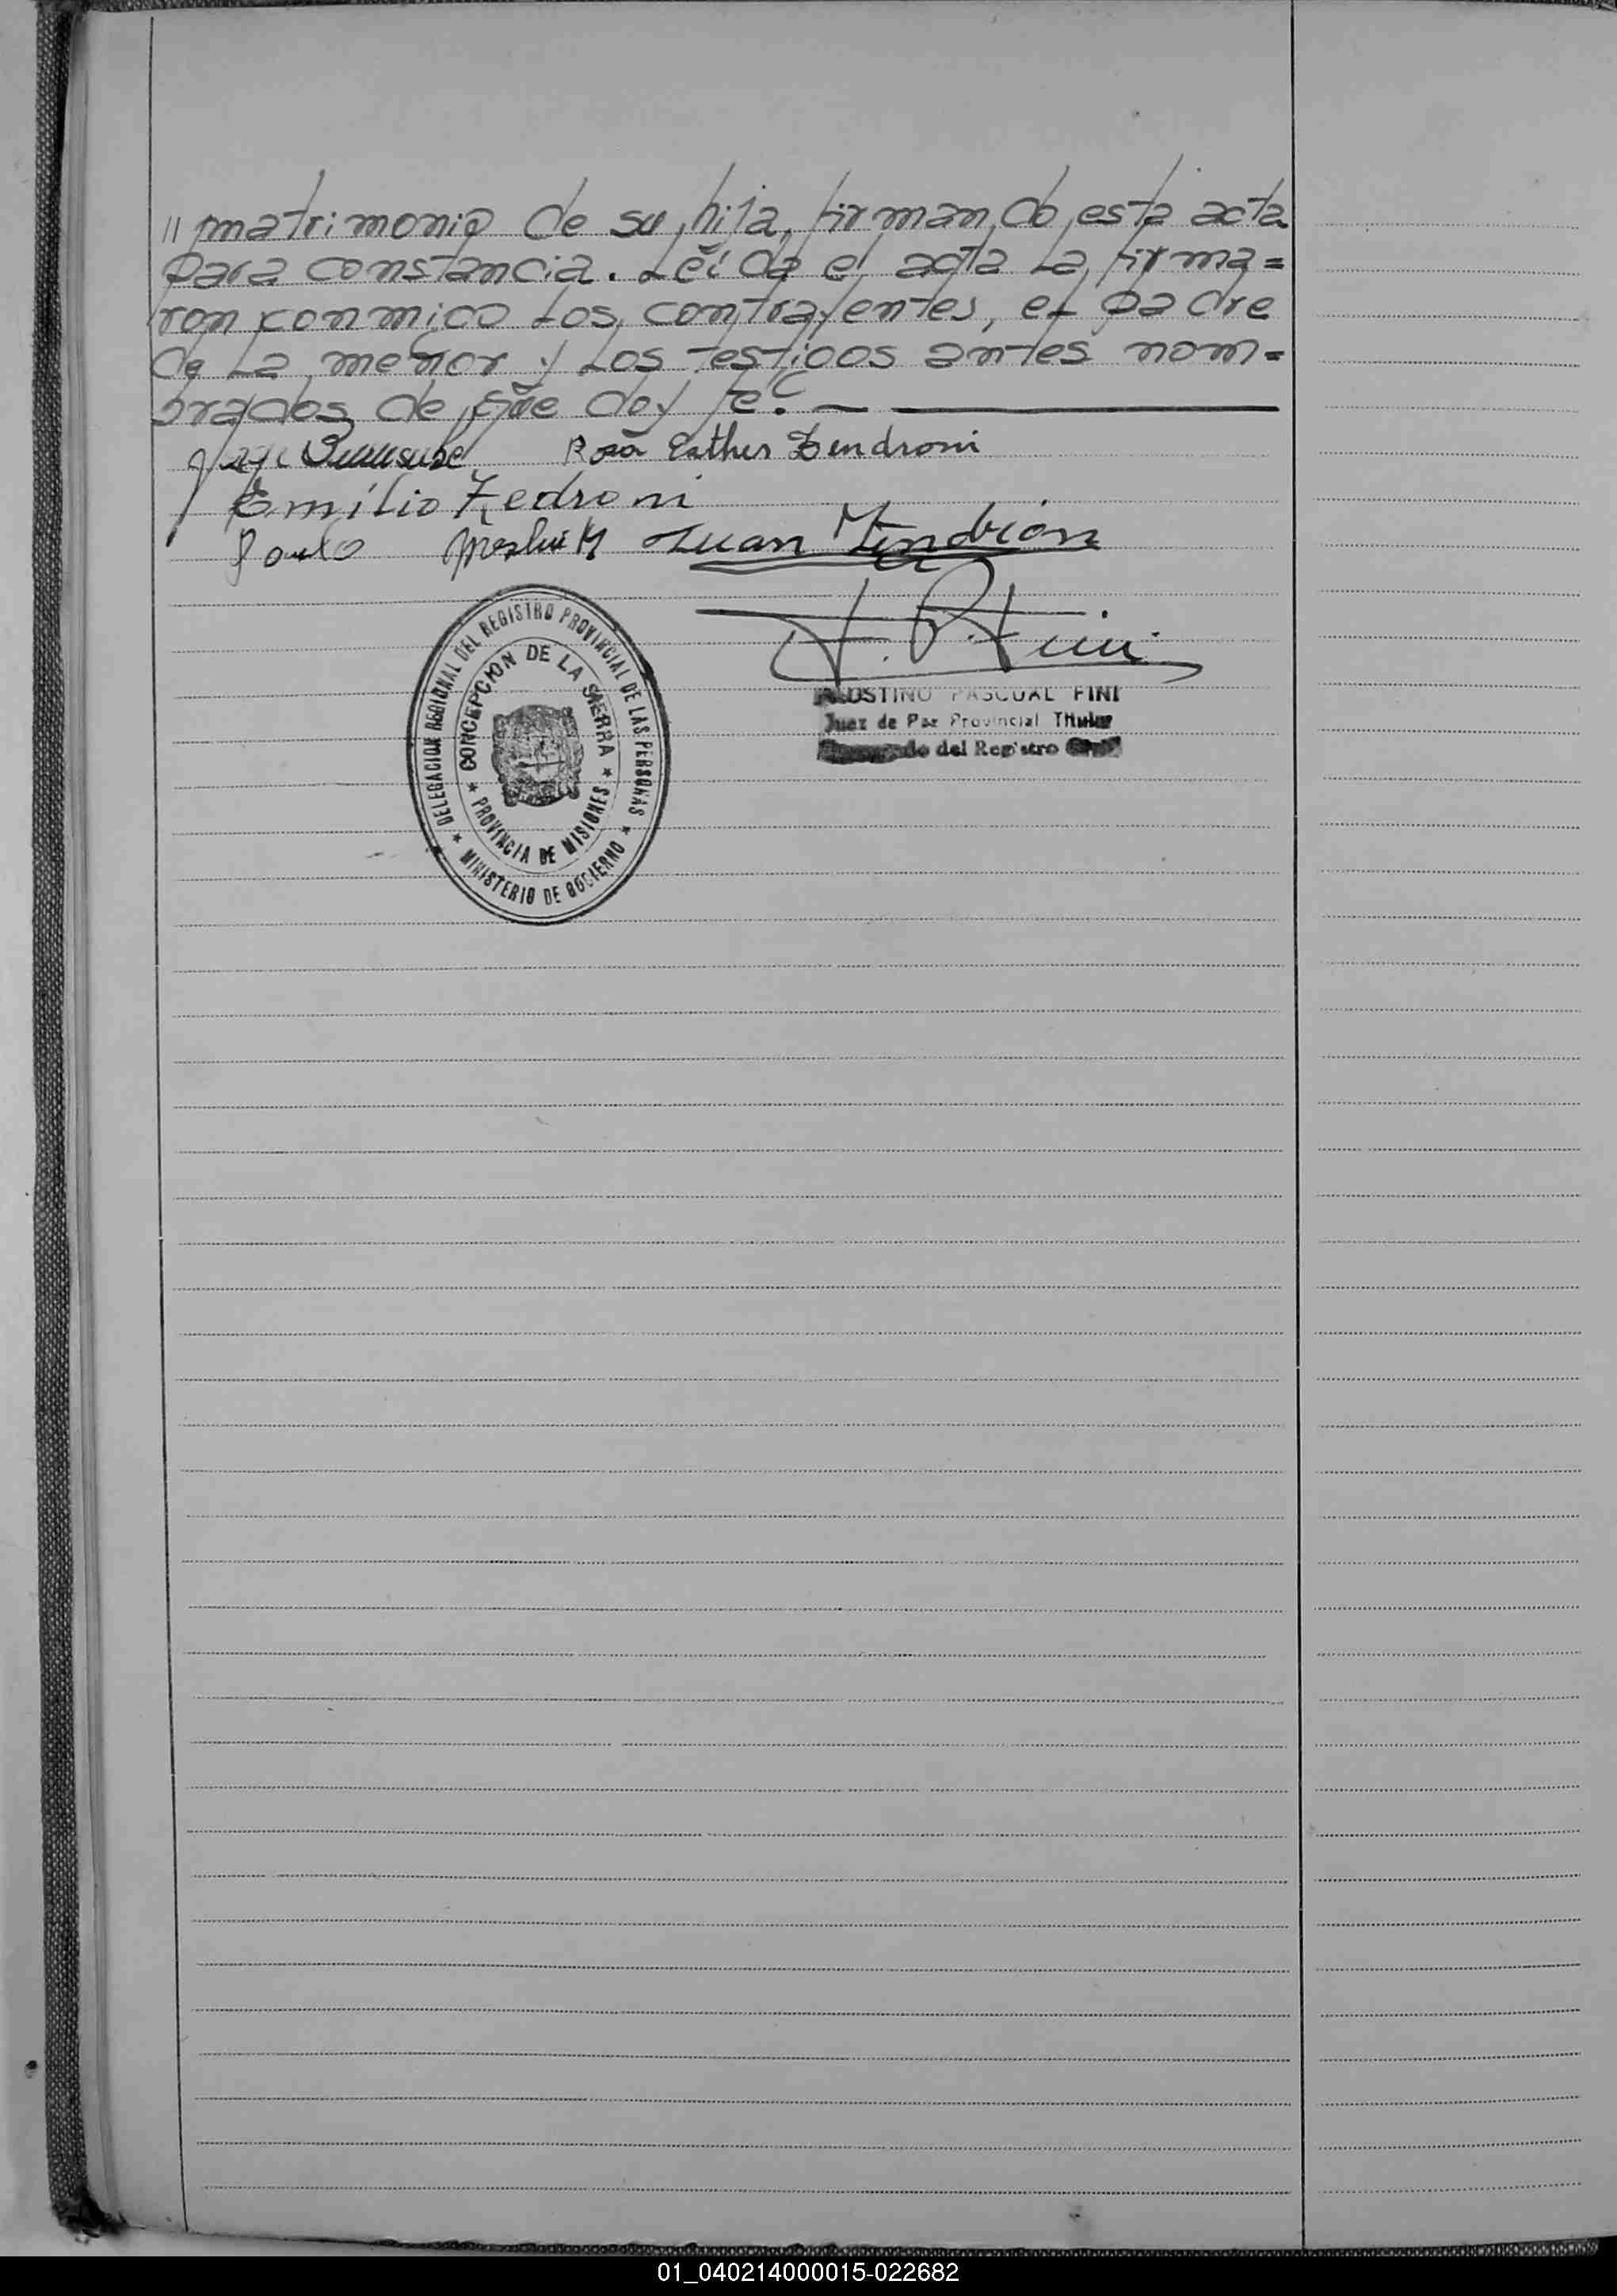 // matrimonio de su hija, firmando esta acta
para constancia. Leída el acta la firma=
ron conmigo los contrayentes, el padre
de la menor y los testigos antes nom=
brados de que doy fe.
Rosa Esther Zendroni
Emilio Zedroni
Juan
DELEGACION REGIONAL DEL REGISTRO PROVINCIAL DE LAS PERSONAS
★ MINISTERIO DE GOBIERNO ★
CONCEPCION DE LA SIERRA
★ PROVINCIA DE MISIONES ★
AGOSTINO PASCUAL FINI
Juez de Paz Provincial Titular
do del Registro
01_040214000015-022682